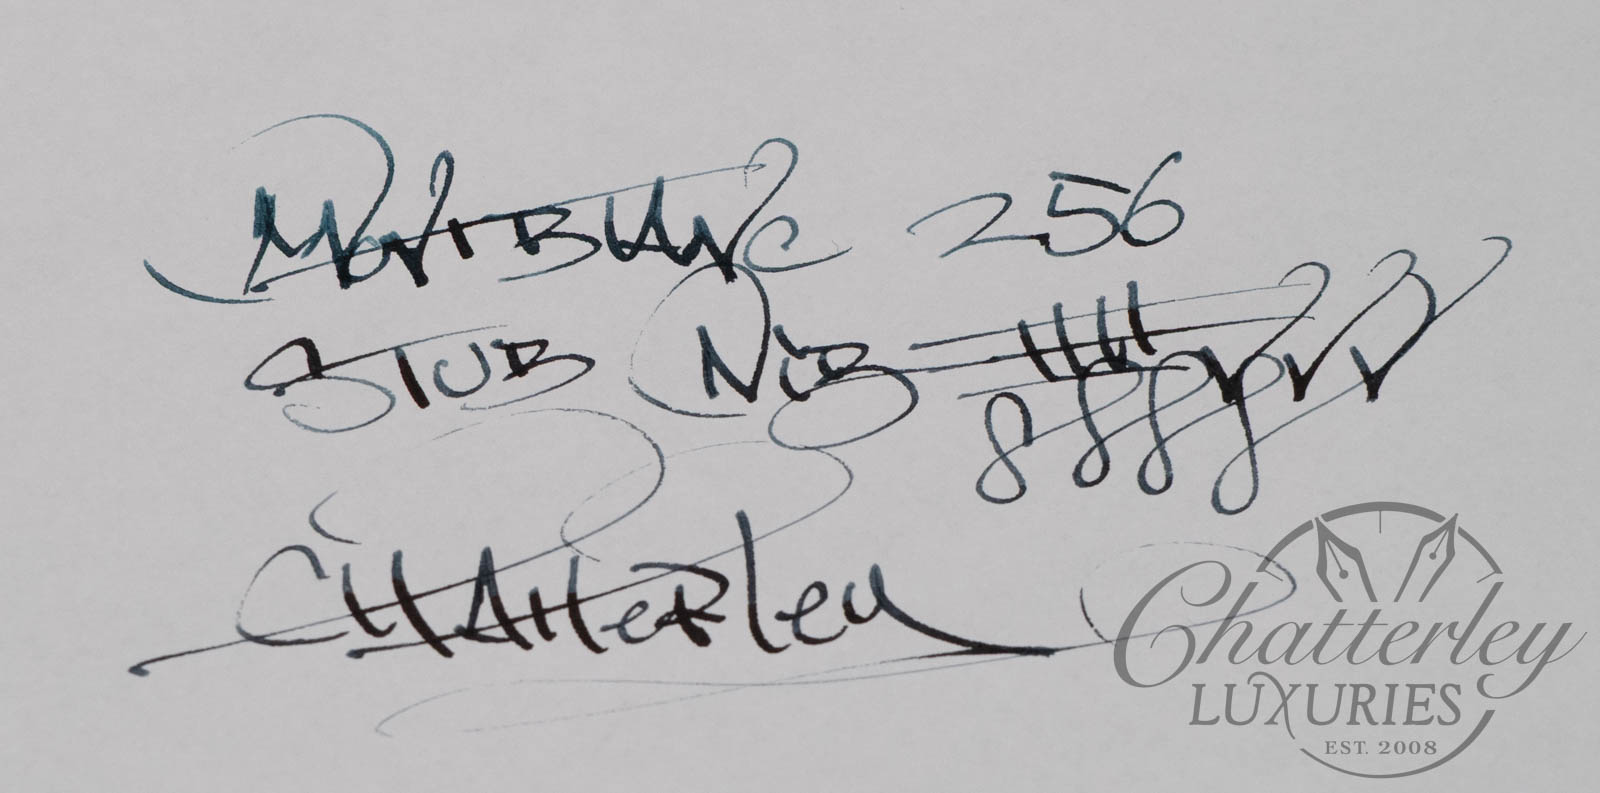 MontBlanc 256
Stub Nib
Chatterley
Chatterley
LUXURIES
EST. 2008